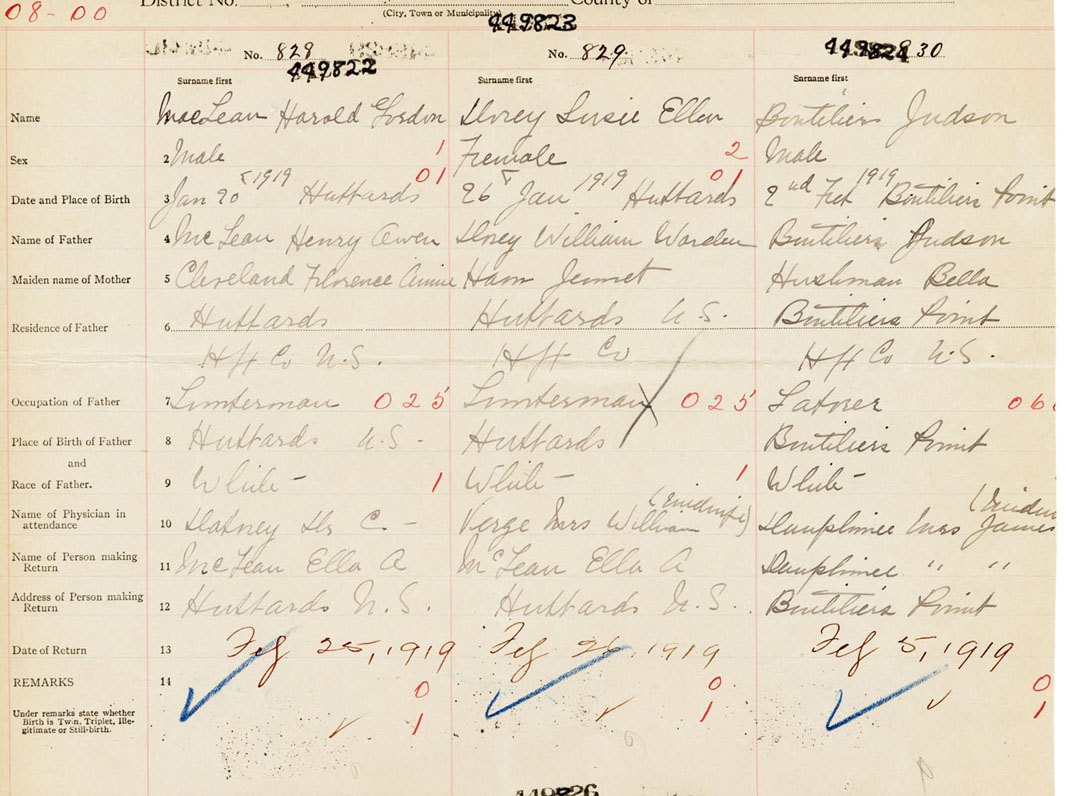 08-00 District No. County of
(City, Town or Municipality)
449823
No. 828 No. 829 449824 830
449822
Surname first Surname first Surname first
Name MacLean Harold Gordon Dorey Susie Ellen Boutiliers Judson
Sex 2 Male 1 Female 2 Male
01 01
Date and Place of Birth 3 Jan 20 1919 Hubbards 26 Jan 1919 Hubbards 2nd Feb 1919 Boutiliers Point
Name of Father 4 McLean Henry Owen Dorey William Warden Boutiliers Judson
Maiden name of Mother 5 Cleveland Florence Annie Ham Jennet Hushman Bella
Residence of Father 6 Hubbards Hubbards N.S. Boutiliers Point
Hfx Co N.S. Hfx Co Hfx Co N.S.
Occupation of Father 7 Lumberman 025 Lumberman 025 Laborer 06
Place of Birth of Father 8 Hubbards N.S- Hubbards Boutiliers Point
and
Race of Father. 9 White- 1 White- 1 White-
Name of Physician in attendance 10 Dr C.- Verge Mrs William (Midwife) Dauphinee Mrs James
Name of Person making Return 11 McLean Ella A McLean Ella A Dauphinee " "
Address of Person making Return 12 Hubbards N.S. Hubbards N.S. Boutiliers Point
Date of Return 13 Feb 25, 1919 Feb 26 1919 Feb 5, 1919
REMARKS 14 0 0 0
Under remarks state whether Birth is Twin, Triplet, Ille-
gitimate or Still-birth. 1 1 1
449826